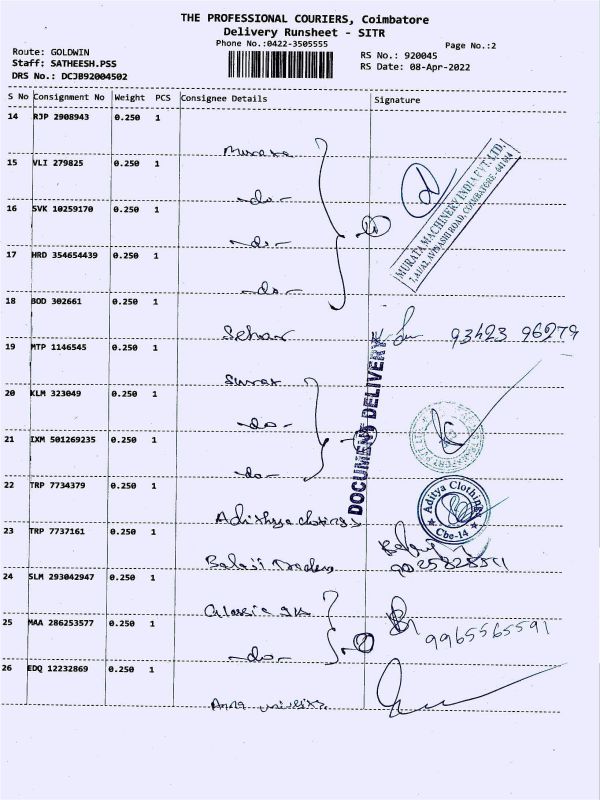 THE PROFESSIONAL COURIERS, Coimbatore
Delivery Runsheet - SITR
Phone No.:0422-3505555
Page No.:2
Route: GOLDWIN
RS No.: 920045
Staff: SATHEESH.PSS
RS Date: 08-Apr-2022
DRS No.: DCJB92004502
S No Consignment No Weight PCS Consignee Details Signature
14 RJP 2908943 0.250 1
Murata
15 VLI 279825 0.250 1
-do-
16 SVK 10259170 0.250 1
-do-
17 HRD 354654439 0.250 1
-do-
MURATA MACHINERY INDIA PVT. LTD.
AVINASHI ROAD, COIMBATORE - 641 014
18 BOD 302661 0.250 1
Sehar
93423 96279
19 MTP 1146545 0.250 1
20 KLM 323049 0.250 1
-do-
21 IXM 501269235 0.250 1
-do-
DOCUMENT DELIVERY
22 TRP 7734379 0.250 1
Adithya
Aditya Clothing
Cbe-14
23 TRP 7737161 0.250 1
Balaji Traders
24 SLM 293042947 0.250 1
25 MAA 286253577 0.250 1
-do-
9965565591
26 EDQ 12232869 0.250 1
Anna